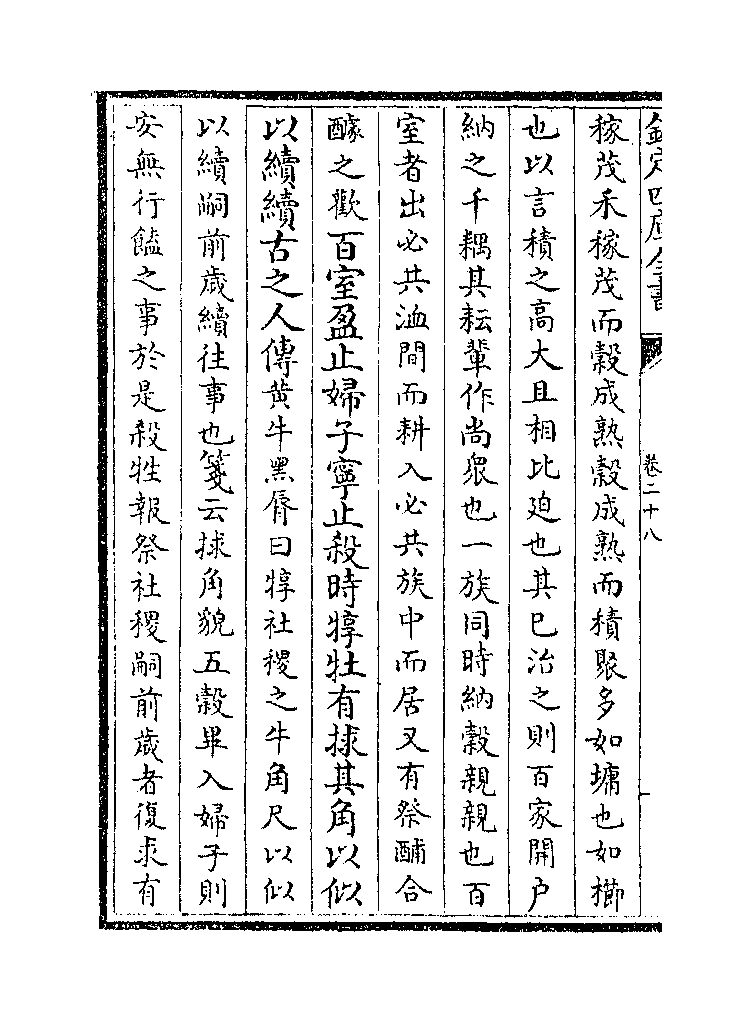 欽定四庫全書
卷二十八
稼茂禾稼茂而穀成熟穀成熟而積聚多如墉也如櫛
也以言積之高大且相比迫也其已治之則百家開户
納之千耦其耘輩作尚衆也一族同時納穀親親也百
室者出必共洫間而耕入必共族中而居又有祭酺合
醵之歡百室盈止婦子寧止殺時犉牡有捄其角以似
以續續古之人傳黄牛黑脣曰犉社稷之牛角尺以似
以續嗣前歳續往事也箋云捄角貌五穀畢入婦子則
安無行饁之事於是殺牲報祭社稷嗣前歳者復求有